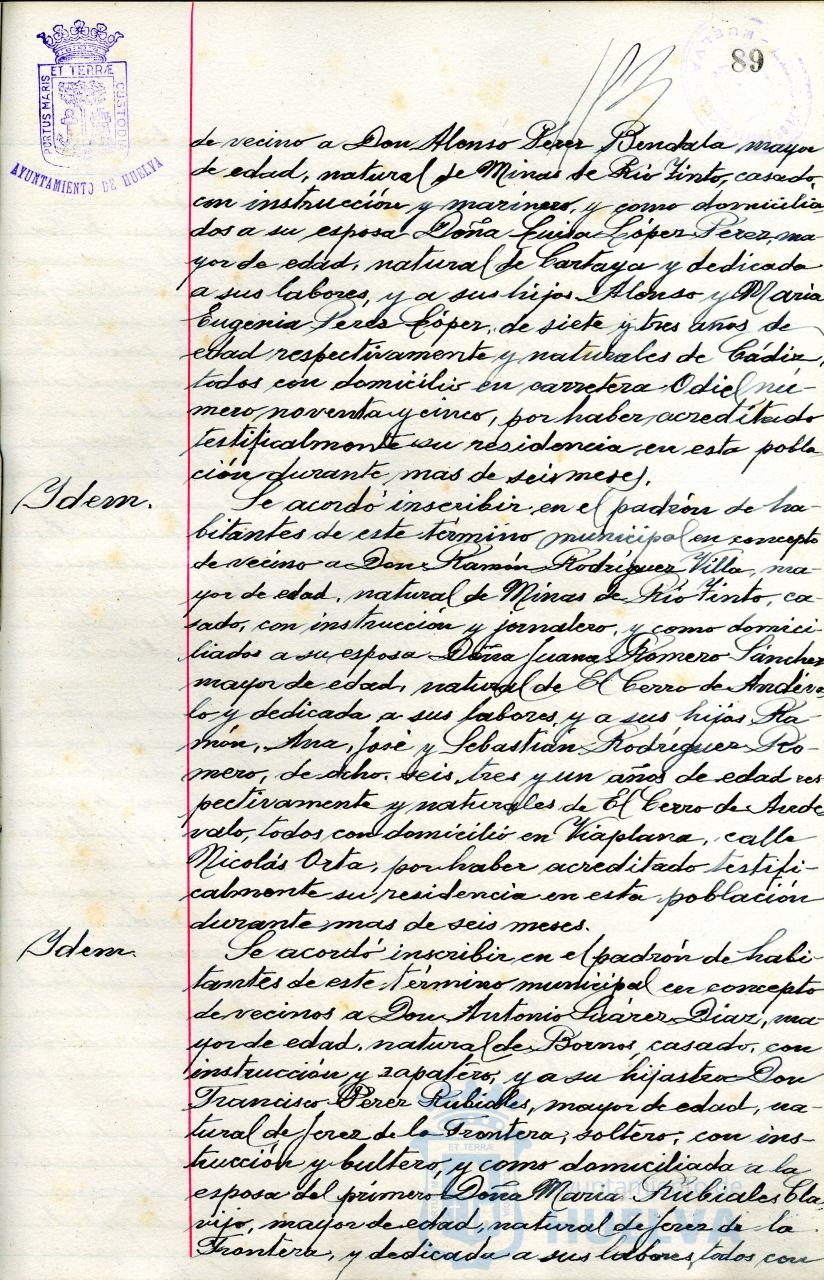 89
ET TERRÆ
PORTUS MARIS
CUSTODIA
AYUNTAMIENTO DE HUELVA
HUELVA
de vecino a Don Alonso Pérez Bendala mayor
de edad, natural de Minas de Rio Tinto, casado,
con instrucción y marinero, y como domicilia
dos a su esposa Doña Luisa López Pérez, ma
yor de edad, natural de Cartaya y dedicada
a sus labores, y a sus hijos Alonso y María
Eugenia Pérez López, de siete y tres años de
edad respectivamente y naturales de Cádiz,
todos con domicilio en carretera Odiel nú-
mero noventa y cinco, por haber acreditado
testificalmente su residencia en esta pobla
ción durante mas de seis meses.
Ydem.
Se acordó inscribir en el padrón de ha-
bitantes de este término municipal en concepto
de vecino a Don Ramón Rodríguez Villa, ma-
yor de edad, natural de Minas de Río Tinto, ca-
sado, con instrucción y jornalero, y como domici-
liados a su esposa Doña Juana Romero Sánchez
mayor de edad, natural de El Cerro de Andéva
lo y dedicada a sus labores, y a sus hijos Ra-
món, Ana, José y Sebastián Rodríguez Ro-
mero, de ocho, seis, tres y un años de edad res
pectivamente y naturales de El Cerro de Ande
valo, todos con domicilio en Viaplana, calle
Nicolás Orta, por haber acreditado testifi-
calmente su residencia en esta población
durante mas de seis meses.
Ydem.
Se acordó inscribir en el padrón de habi-
tantes de este término municipal en concepto
de vecinos a Don Antonio Suárez Diaz, ma-
yor de edad, natural de Bornos, casado, con
instrucción y zapatero, y a su hijastro Don
Francisco Pérez Rubiales, mayor de edad, na-
tural de Jerez de la Frontera, soltero, con ins-
trucción y bultero, y como domiciliada a la
esposa del primero Doña María Rubiales Cla
vijo, mayor de edad, natural de Jerez de la
Frontera, y dedicada a sus labores, todos con
ET TERRÆ
Ayuntamiento de
HUELVA